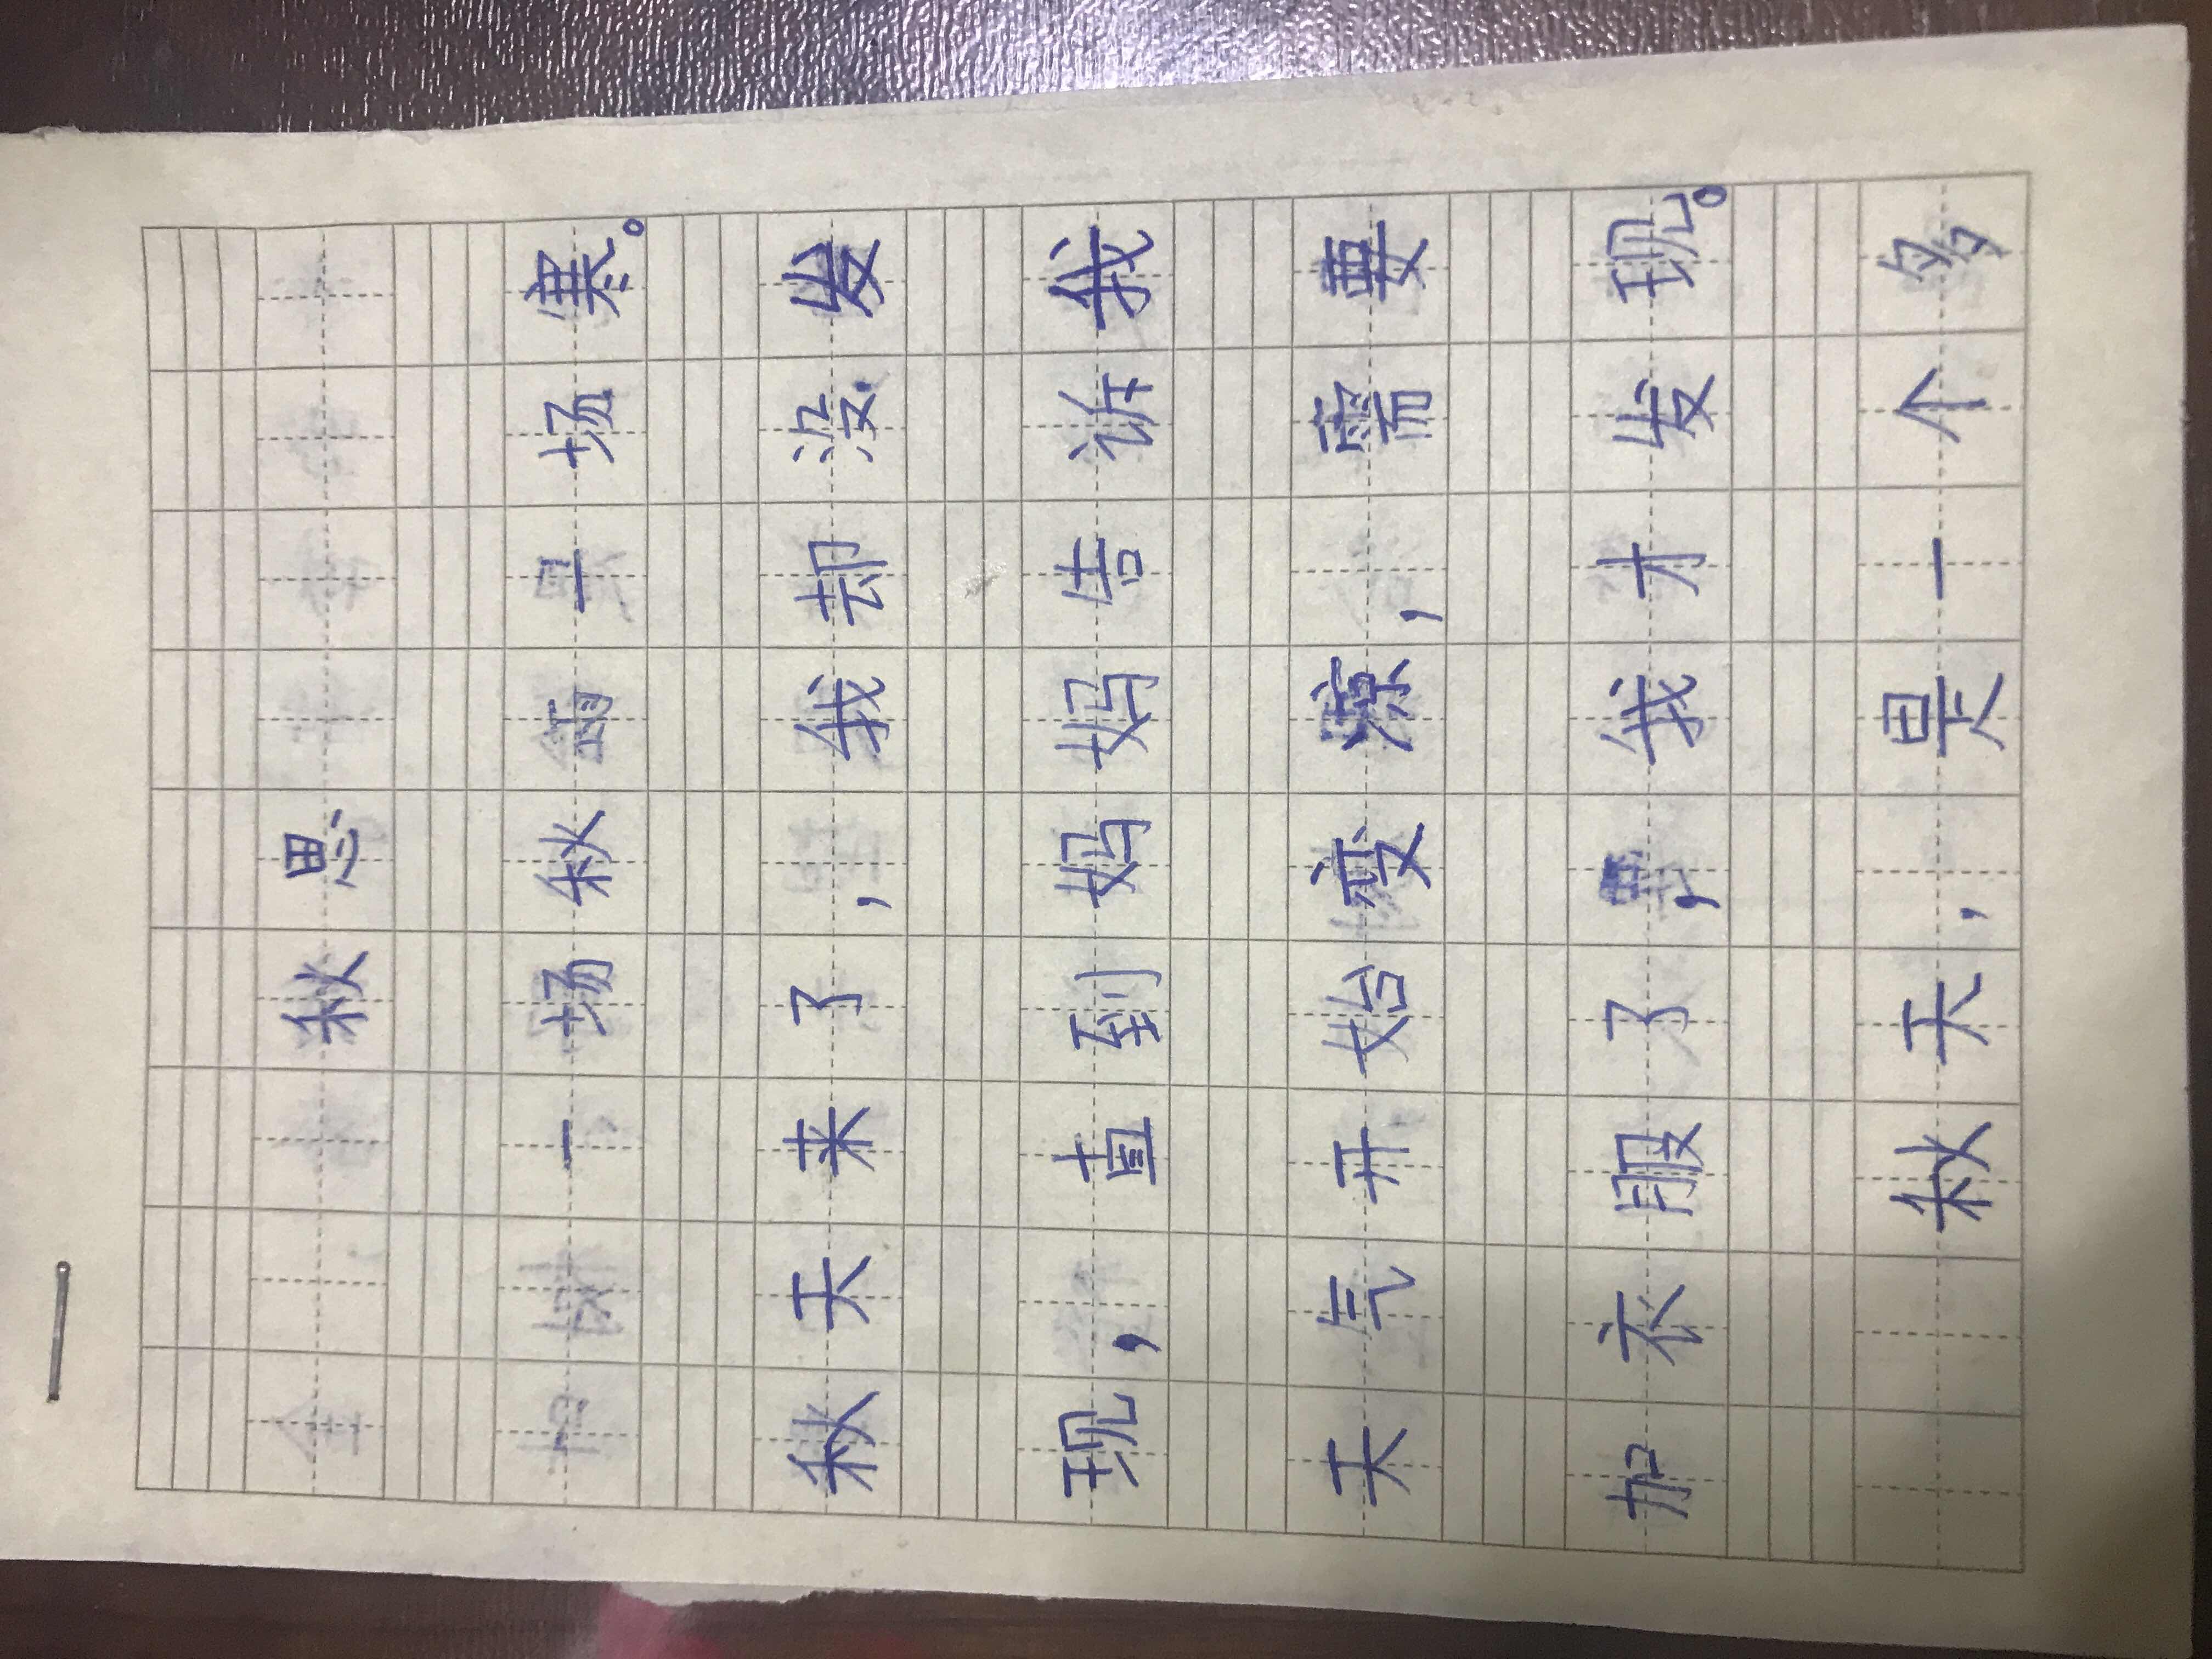 秋思
一场秋雨一场寒。
秋天来了，我却没发
现，直到妈妈告诉我
天气开始变凉，需要
加衣服了，我才发现。
秋天，是一个多